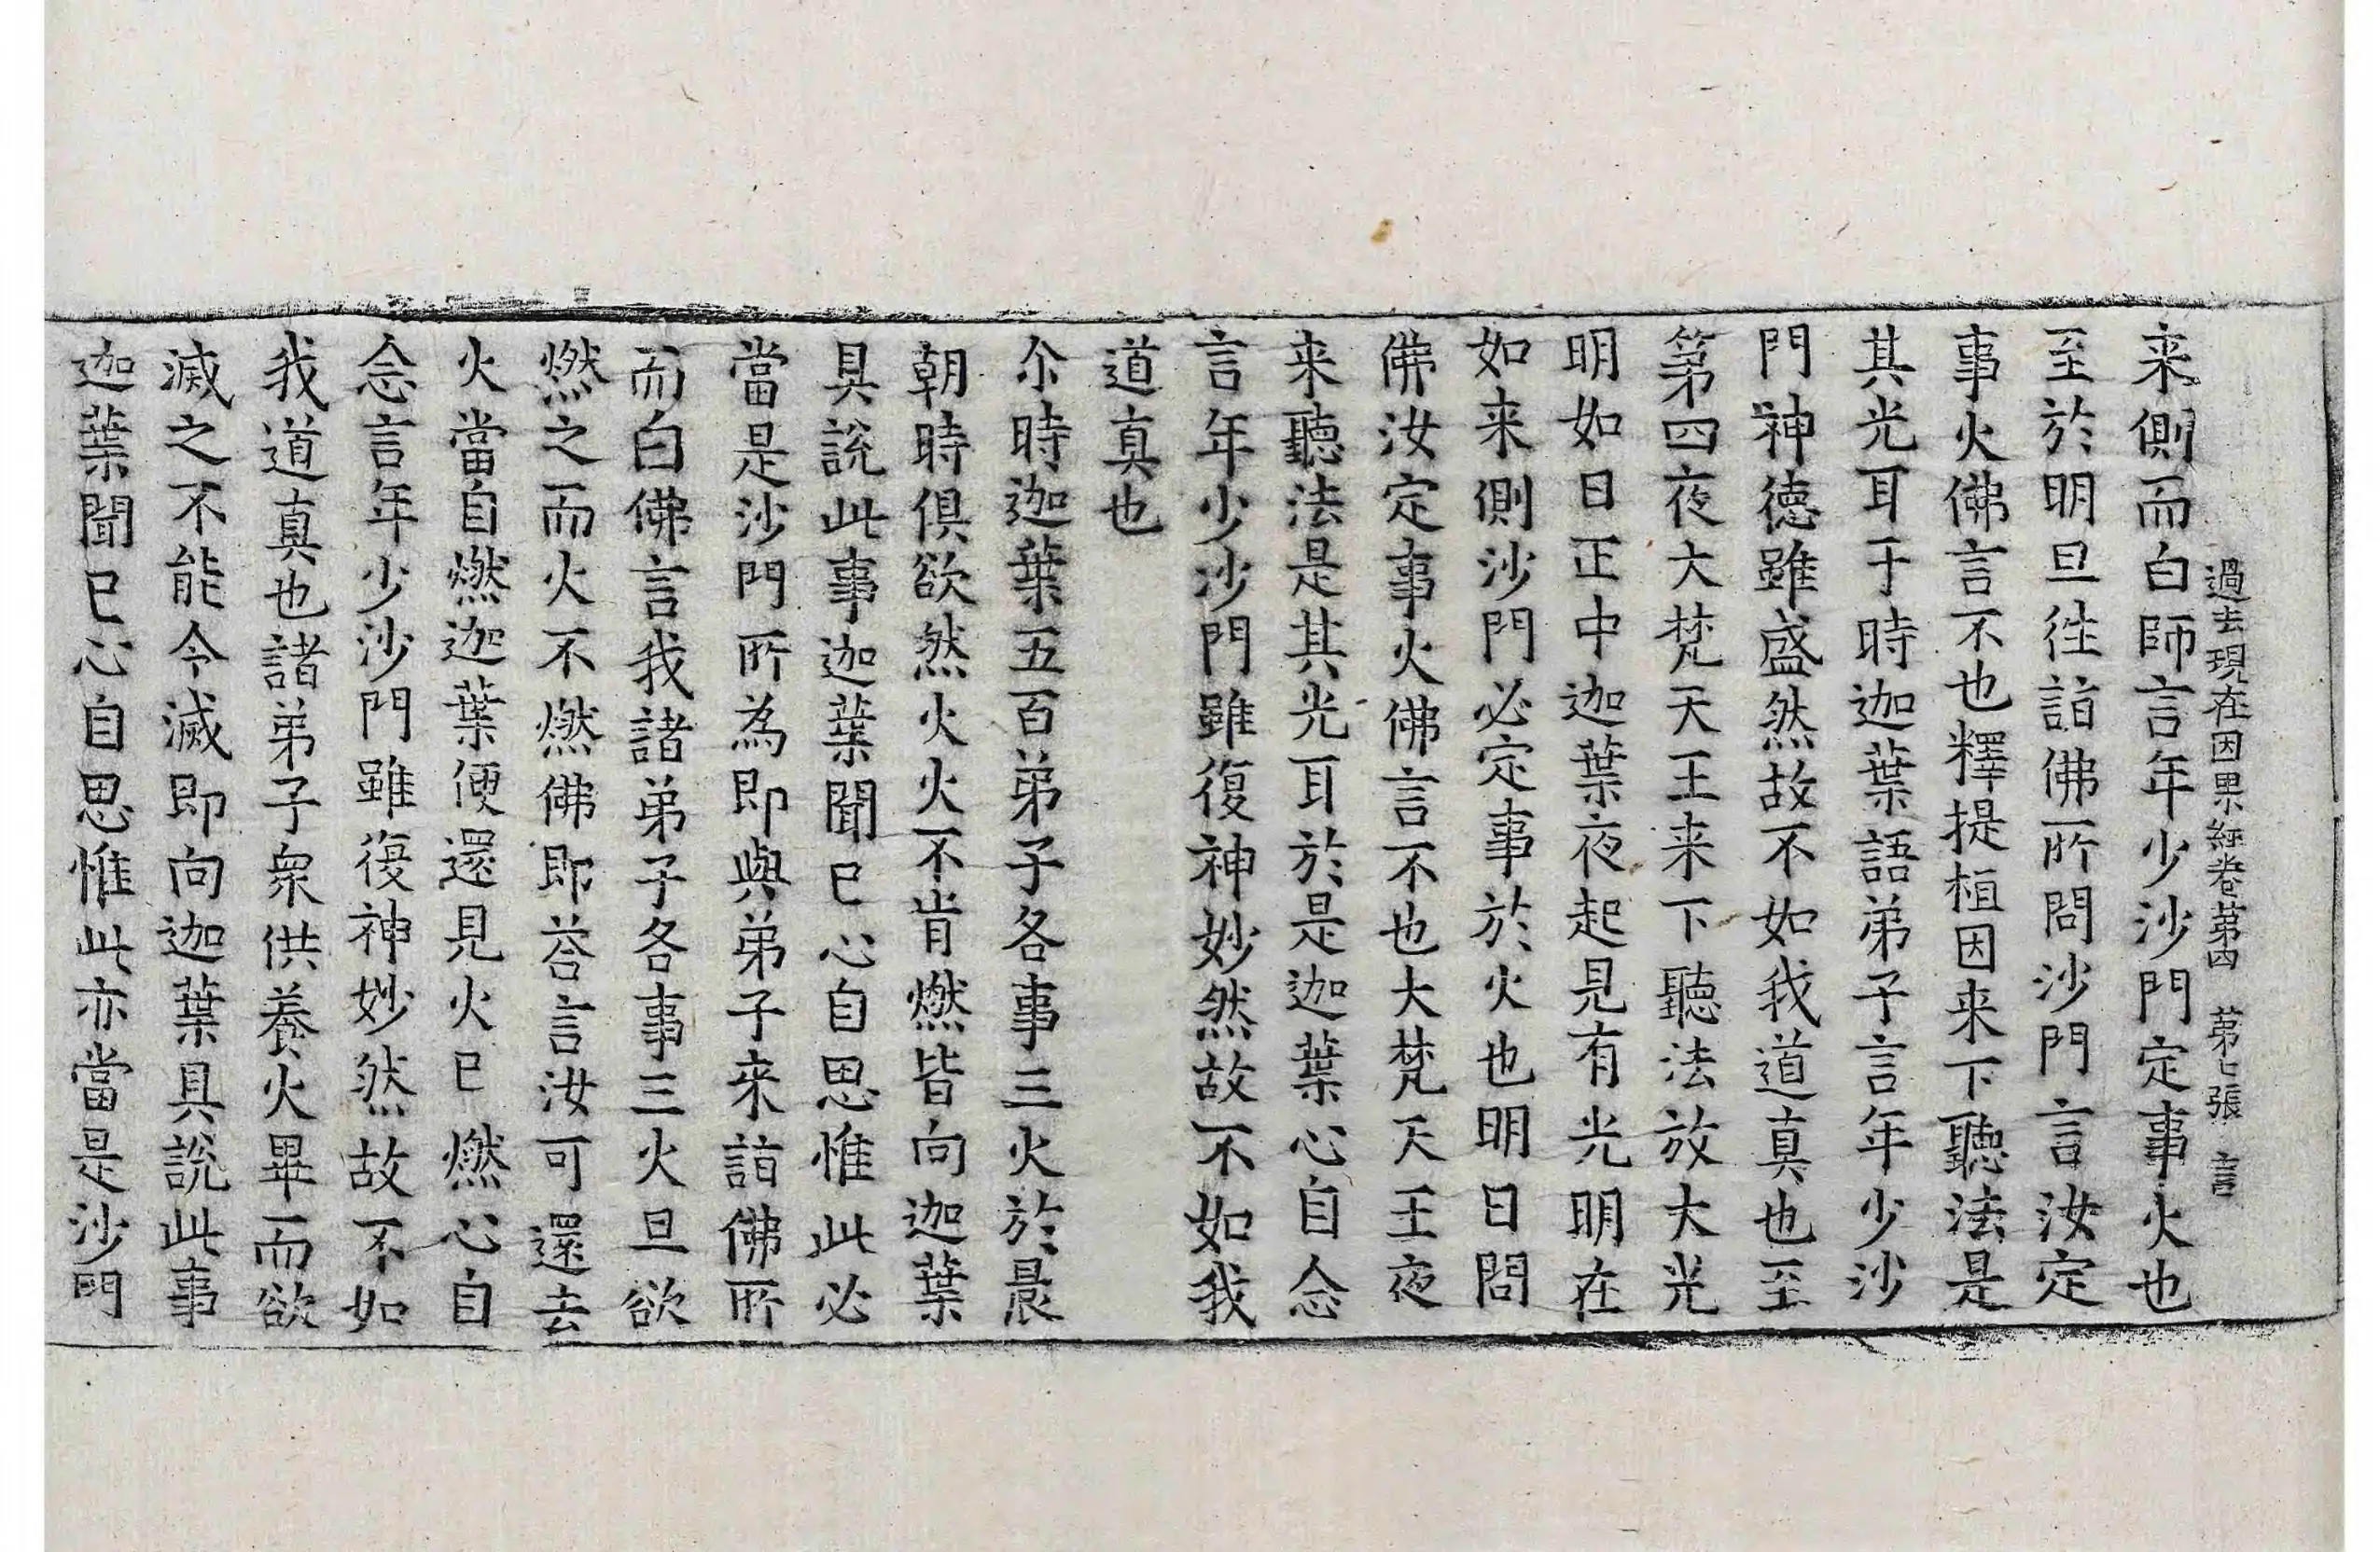 過去現在因果經卷苐四　苐七張　言
来側而白師言年少沙門定事火也
至於明旦徃詣佛所問沙門言汝定
事火佛言不也釋提桓因来下聽法是
其光耳于時迦葉語弟子言年少沙
門神德雖盛然故不如我道真也至
第四夜大梵天王来下聽法放大光
明如日正中迦葉夜起見有光明在
如来側沙門必定事於火也明日問
佛汝定事火佛言不也大梵天王夜
来聽法是其光耳於是迦葉心自念
言年少沙門雖復神妙然故不如我
道真也
尒時迦葉五百弟子各事三火於晨
朝時俱欲然火火不肯燃皆向迦葉
具說此事迦葉聞已心自思惟此必
當是沙門所為即與弟子来詣佛所
而白佛言我諸弟子各事三火旦欲
燃之而火不燃佛即荅言汝可還去
火當自燃迦葉便還見火已燃心自
念言年少沙門雖復神妙然故不如
我道真也諸弟子衆供養火畢而欲
滅之不能令滅即向迦葉具說此事
迦葉聞已心自思惟此亦當是沙門